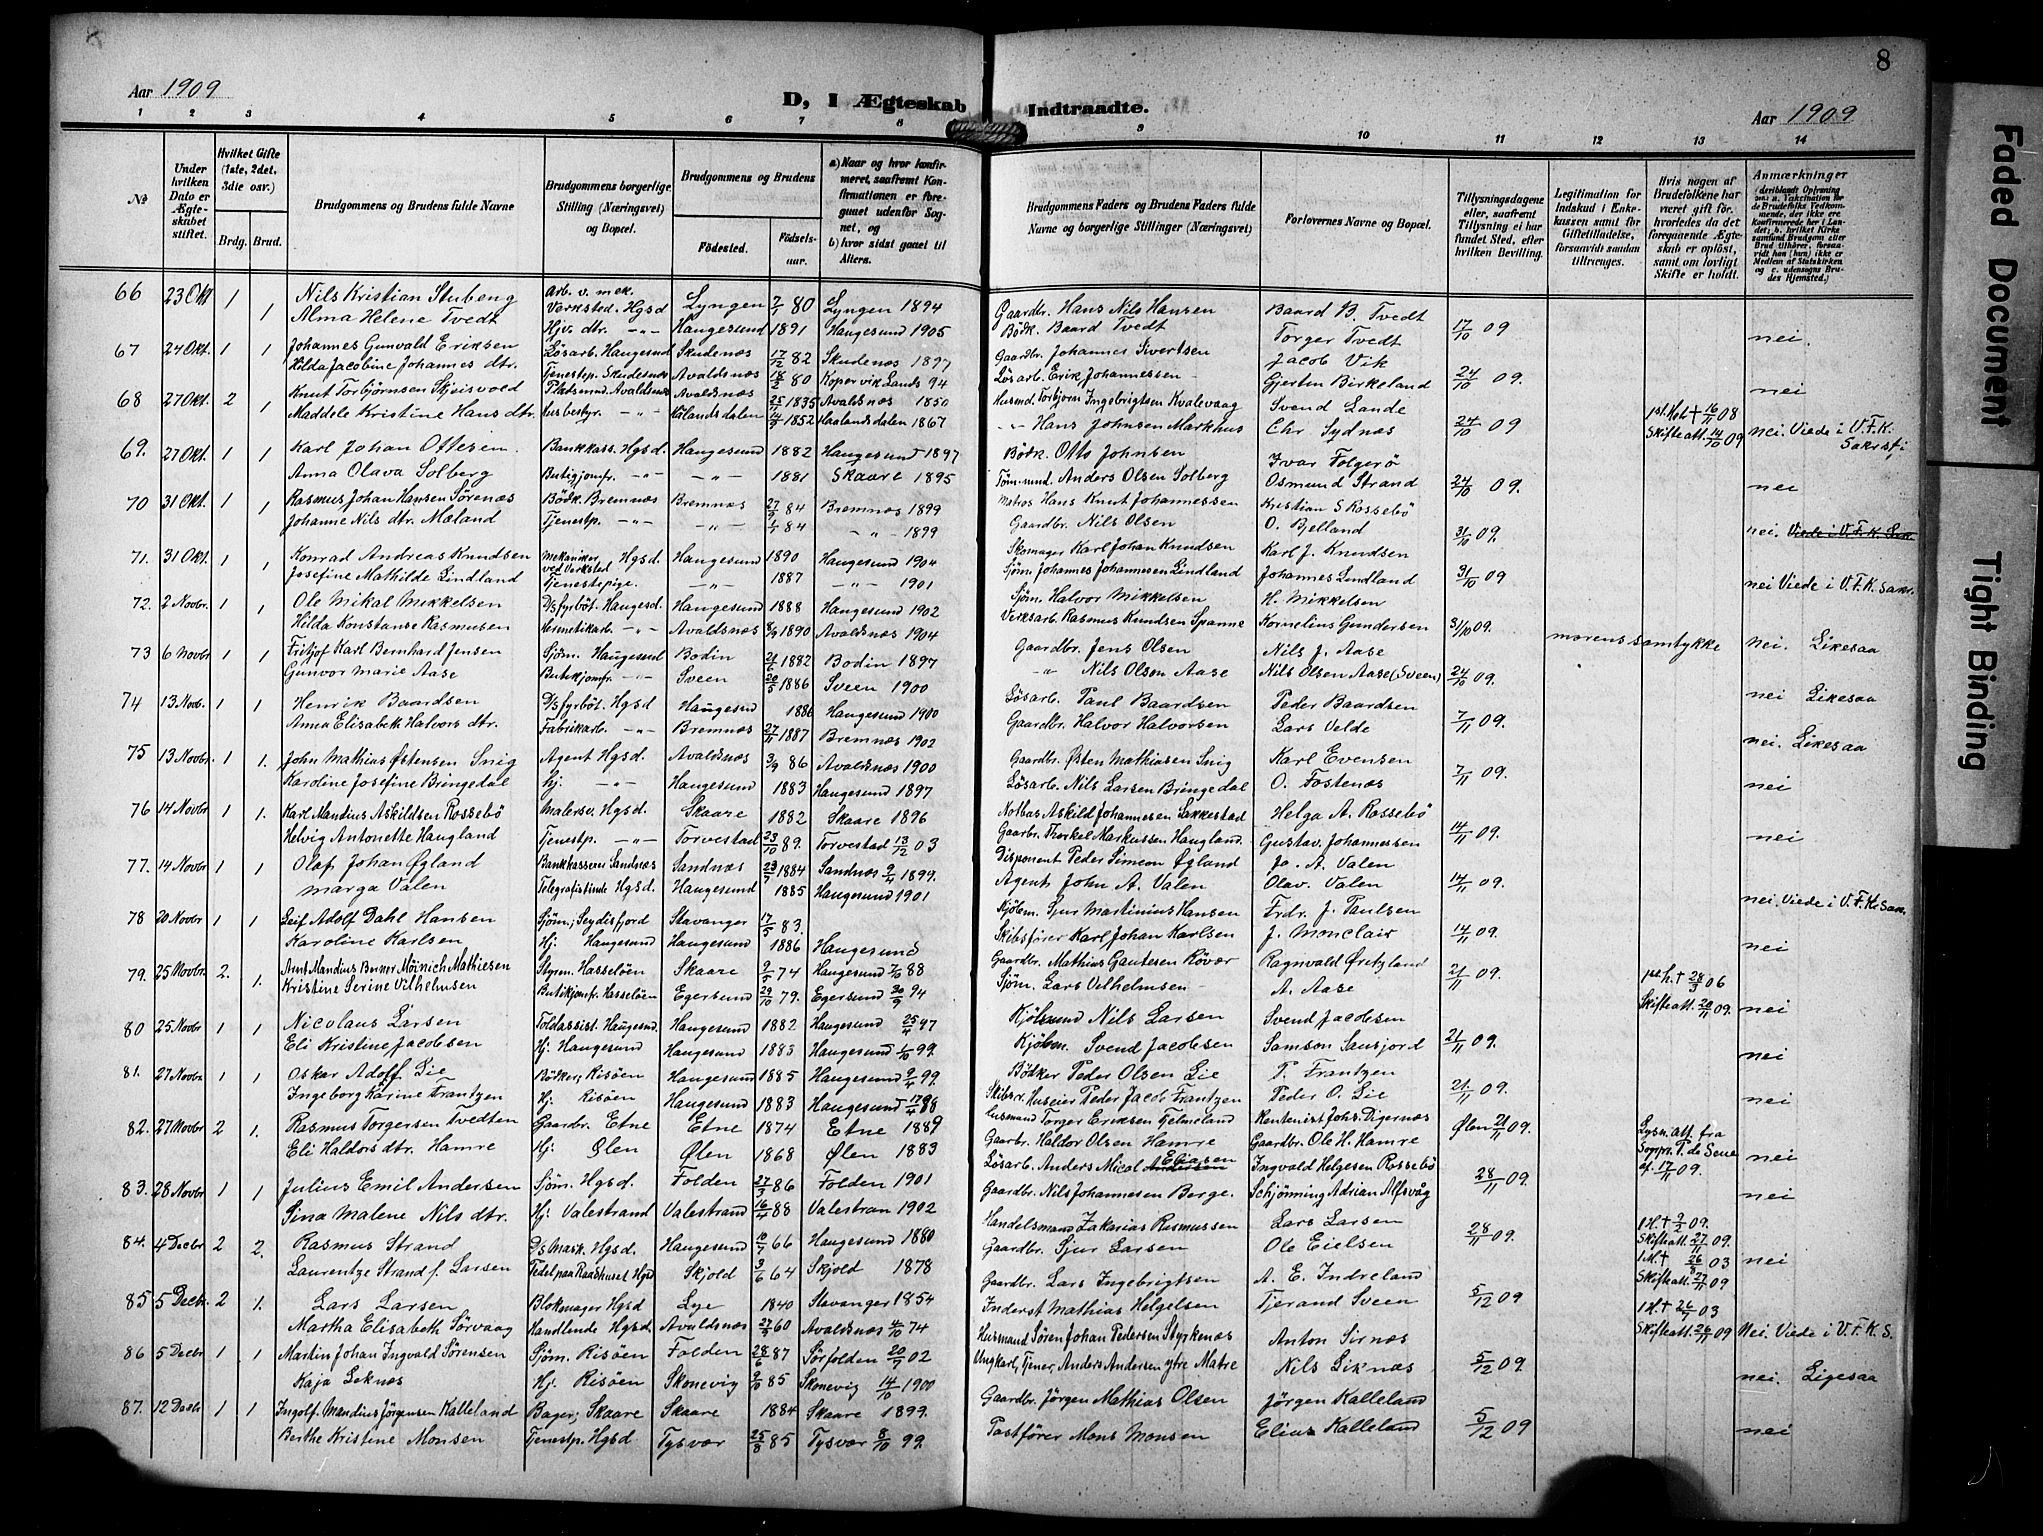 8
8
Aar 1909
D, I Ægteskab Indtraadte.
Aar 1909
1 2 3 4 5 6 7 8 9 10 11 12 13 14
№
Under hvilken Dato er Ægteskabet stiftet.
Hvilket Gifte (1ste, 2det, 3die osv.)
Brdg. Brud.
Brudgommens og Brudens fulde Navne
Brudgommens borgerlige Stilling (Næringsvei) og Bopæl.
Brudgommens og Brudens
Födested.
Födsels-aar.
a) Naar og hvor konfirmeret, saafremt Konfirmationen er foregaaet udenfor Sognet, og
b) hvor sidst gaaet til Alters.
Brudgommens Faders og Brudens Faders fulde Navne og borgerlige Stillinger (Næringsvei)
Forlovernes Navne og Bopæl.
Tillysningsdagene eller, saafremt Tillysning ei har fundet Sted, efter hvilken Bevilling.
Legitimation for Indskud i Enkekassen samt for Giftetilladelse, forsaavidt saadan tiltrænges.
Hvis nogen af Brudefolkene har været gift för, hvorledes da det foregaaende Ægteskab er oplöst, samt om lovligt Skifte er holdt.
Anmærkninger
66 23 Okt 1 Nils Kristian Stubeng Arb. v. mek. Verksted. Hgsd Lyngen 7/1 80 Lyngen 1894 Gaardbr. Hans Nils Hansen Baard B. Tvedt
1 Alma Helene Tvedt Hjv. dtr. -"- Haugesund 1891 Haugesund 1905 Bödk. Baard Tvedt Torger Tvedt 17/10 09 nei.
67 24 Okt. 1 1 Johannes Gunvald Eriksen Lösarb. Haugesund Skudenæs 17/2 82 Skudenæs 1897 Gaardbr. Johannes Sivertsen Jacob Vik
Hilda Jacobine Johannes dtr. Tjenestep. Skudesnæs Avaldsnæs 18/2 80 Kopervik Lands 94 Lösarb. Erik Johannessen Gjerten Birkeland 24/10 09. nei
68 27 Okt. 2 Knut Torbjörnsen Skjisvold Pladsmand Avaldsnæs Avaldsnæs 25/11 1835 Avaldsnæs 1850 Husmd Torbjörn Ingebrigtsen Kvalevaag Svend Lande 1st. Hst + 16/11 08
1 Maddele Kristine Hans dtr. husbestyr. -"- Hålandsdalen 14/5 1852 Haalandsdalen 1867 -"- Hans Johnsen Markhus Chr Sydnæs 24/10 09 Skifteatt. 14/10 09 nei. Viede i V.F.K. Sakristi
69. 27 Okt. 1 1 Karl Johan Ottesen. Bankkass. Hgsd. Haugesund 1882 Haugesund 1897 Bödk. Otto Johnsen Ivar Folgerö
Anna Olava Solberg Butigjomfr. -"- -"- 1881 Skaare 1895 Töm.mnd. Anders Olsen Solberg Osmund Strand 24/10 09. nei
70 31 Okt. 1 1 Rasmus Johan Hansen Sörenæs Bödk. Bremnæs Bremnæs 27/9 84 Bremnæs 1899 Matros Hans Knut Johannessen Kristian S Rossebö
Johanne Nils dtr. Mæland Tjenestp. -"- -"- 1/1 84 -"- 1899 Gaardbr. Nils Olsen O. Bjelland 31/10 09. nei. Viede i V.F.K. Sak.
71. 31 Okt. 1 1 Konrad Andreas Knudsen Mekaniker ved Verksted Hgsd Haugesund 1890 Haugesund 1904 Skomager Karl Johan Knudsen Karl J. Knudsen
Josefine Mathilde Lindland Tjenestepige. -"- 1887 -"- 1901 Sjöm. Johannes Johannesen Lindland Johannes Lindland 31/10 09 nei Viede i V.F.K. Sakr.
72. 2 Novbr. 1 1 Ole Mikal Mikkelsen D/s fyrböt. Haugesd. Haugesund 1888 Haugesund 1902 Sjöm. Halvor Mikkelsen H. Mikkelsen
Hilda Konstanse Rasmusen Hermetikarb. -"- Avaldsnæs 8/9 1890 Avaldsnæs 1904 Verksarb. Rasmus Knudsen Spanne Kornelius Gundersen 31/10 09. morens samtykke nei. Likesaa
73 6 Novbr 1 1 Fritjof Karl Bernhard Jensen Sjöm. Haugesund Bodin 21/6 1882 Bodin 1897 Gaardbr. Jens Olsen Nils J. Aase
Gunvor Marie Aase Butikjomfr. -"- Sveen 20/5 1886 Sveen 1900 -"- Nils Olson Aase Nils Olsen Aase (Sveen) 24/10 09. nei Likesaa
74 13 Novb. 1 1 Henrik Baardsen D/s fyrböt. Hgsd Haugesund 1886 Haugesund 1900 Lösarb. Paul Baardsen Peder Baardsen
Anna Elisabeth Halvors dtr. Fabrikarb. -"- Bremnæs 27/11 1887 Bremnæs 1902 Gaardbr. Halvor Halvorsen Lars Velde 7/11 09. nei. Likesaa
75 13 Novbr. 1 1. John Mathias Östensen Snig Agent Hgsd. Avaldsnæs 3/9 86 Avaldsnæs 1900 Gaardbr. Östen Mathiasen Snig Karl Evensen
Karoline Josefine Bringedal hj. -"- Haugesund 1883 Haugesund 1897 Lösarb. Nils Larsen Bringedal O. Fostenæs 7/11 09. nei
76 14 Novbr 1 1. Karl Mandius Askildsen Rossebö Malersv. Hgsd. Skaare 1882 Skaare 1896 Notbas Askild Johannesen Sakkestad Helga A. Rossebö
Helvig Antonette Haugland Tjenestp. -"- Torvestad 23/10 89. Torvestad 13/12 03 Gaarbr. Thorkel Markussen Haugland. Gustav Johannessen 14/11 09. nei
77. 14 Novbr 1 1 Olaf Johan Øgland Bankkasserer Sandnæs Sandnæs 23/7 1884 Sandnæs 9/4 1899. Disponent Peder Simeon Øgland Jo. A. Valen
Marga Valen Telegrafistinde Hgsd. Haugesund 1885 Haugesund 1901 Agent John A. Valen Olav. Valen 14/11 09. nei. Viede i V.F.K. Sak.
78 20 Novbr 1 1 Leif Adolf Dahl Hansen Sjöm; Seydisfjord Stavanger 17/5 83. Kjöbm. Sjur Martinius Hansen Frdr. J. Paulsen
Karoline Karlsen Hj. Haugesund Haugesund 1886 Haugesund Skibsförer Karl Johan Karlsen J. Monclair 14/11 09. nei
79. 25 Novbr. 2. Arnt Mandius Berner Möinich Mathiesen Styrm. Hasselöen Skaare 9/5 74 Haugesund 7/10 88 Gaardbr. Mathias Gautesen Rövær Ragnvald Øritzland 1st. h. + 28/3 06
1. Kristine Serine Vilhelmsen Butikjomfr. Hasselöen Egersund 29/10 79. Egersund 30/9 94 Sjöm. Lars Vilhelmsen A. Aase 21/11 09. Skifteatt. 20/11 09. nei
80 25 Novbr. 1 1 Nicolaus Larsen Toldassist. Haugesund. Haugesund 1882 Haugesund 25/4 97 Kjöbmand Nils Larsen Svend Jacobsen
Eli Kristine Jacobsen Hj. Haugesund Haugesund 1883 Haugesund 1/10 99. Kjöbm. Svend Jacobsen Samson Sausjord 21/11 09. nei
81. 27 Novbr. 1 1 Oskar Adolf Lie Bödker; Risöen Haugesund 1885 Haugesund 9/4 99. Bödker Peder Olsen Lie P. Frantzen
Ingeborg Karine Frantzen Hj. Risöen Haugesund 1883 Haugesund 17/4 98 Skibsr. Huseier Peder Jacob Frantzen Peder O. Lie 21/11 09. nei
82. 27 Novbr 2 1. Rasmus Torgersen Tvedten Gaardbr. Etne Etne 1874 Etne 1889 Husmand Torger Eriksen Fjelmeland Rentenist Johs. Digernæs Ølen 21/11 09. Lysn. att. fra
Eli Haldors dtr. Hamre Hj. Ølen Ølen 1868 Ølen 1883 Gaarbr. Haldor Olsen Hamre Gaardbr. Ole H. Hamre af 17/11 09. nei
83. 28 Novbr. 1 1 Julius Emil Andersen Sjöm. Hgsd. Folden 27/3 86 Folden 1901 Lösarb. Anders Micol Andersen Eliasen Ingvald Helgesen Rossebö
Sina Malene Nils dtr. Hj. Valestrand Valestrand 16/4 88 Valestran 1902 Gaardbr. Nils Johannesen Berge. Schjönning Adrian Alfsvåg 28/11 09. nei
84. 4 Decbr 2 2. Rasmus Strand D/s Mask. Hgsd. Haugesund 10/7 66 Haugesund 1880 Handelsmand Zakarias Rasmussen Lars Larsen 1 H. + 9/2 09. Skifteatt. 27/11 09.
Laurentze Strand f. Larsen Pedel paa Raadhuset Hgsd Skjold 3/6 64 Skjold 1878 Gaardbr. Sjur Larsen Ole Eielsen 28/11 09. 1 M + 26/8 03 Skifteatt. 27/11 09 nei
85 5 Decbr. 2 1. Lars Larsen Blokmager Hgsd Lye 1840 Stavanger 1854 Gaardbr. Lars Ingebrigtsen A. E. Indreland 1 H. + 26/7 03
Martha Elisabeth Sörvaag Handlende Hgsd. Avaldsnæs 27/5 60 Avaldsnæs 4/10 74 Inderst Mathias Helgelsen Tjerand Sveen 5/12 09 Skifteatt. 26/11 09 Nei. Viede i V.F.K.S.
86 5 Decbr 1 1 Martin Johan Ingvald Sörensen Sjöm. Risöen Folden 28/6 87 Sörfolden 20/7 02 Husmand Sören Johan Pedersen Styrkenæs Anton Sirnæs
Kaja Leknæs Hj. Risöen Skonevig 9/10 85 Skonevig 14/10 1900 Ungkarl, Tjener, Anders Andersen ytre Matre Nils Liknæs 5/12 09. nei. Ligesaa
87. 12 Decbr 1 1 Ingolf Mandius Jörgensen Kalleland Bager; Skaare Skaare 1884 Skaare 1899. Gaardbr. Jörgen Mathias Olsen Jörgen Kalleland
Berthe Kristine Monsen Tjenestp. Hgsd Tysvær 25/8 85 Tysvær 8/10 99. Postförer Mons Monsen Elias Kalleland 5/12 09 nei
Faded Document
Tight Binding